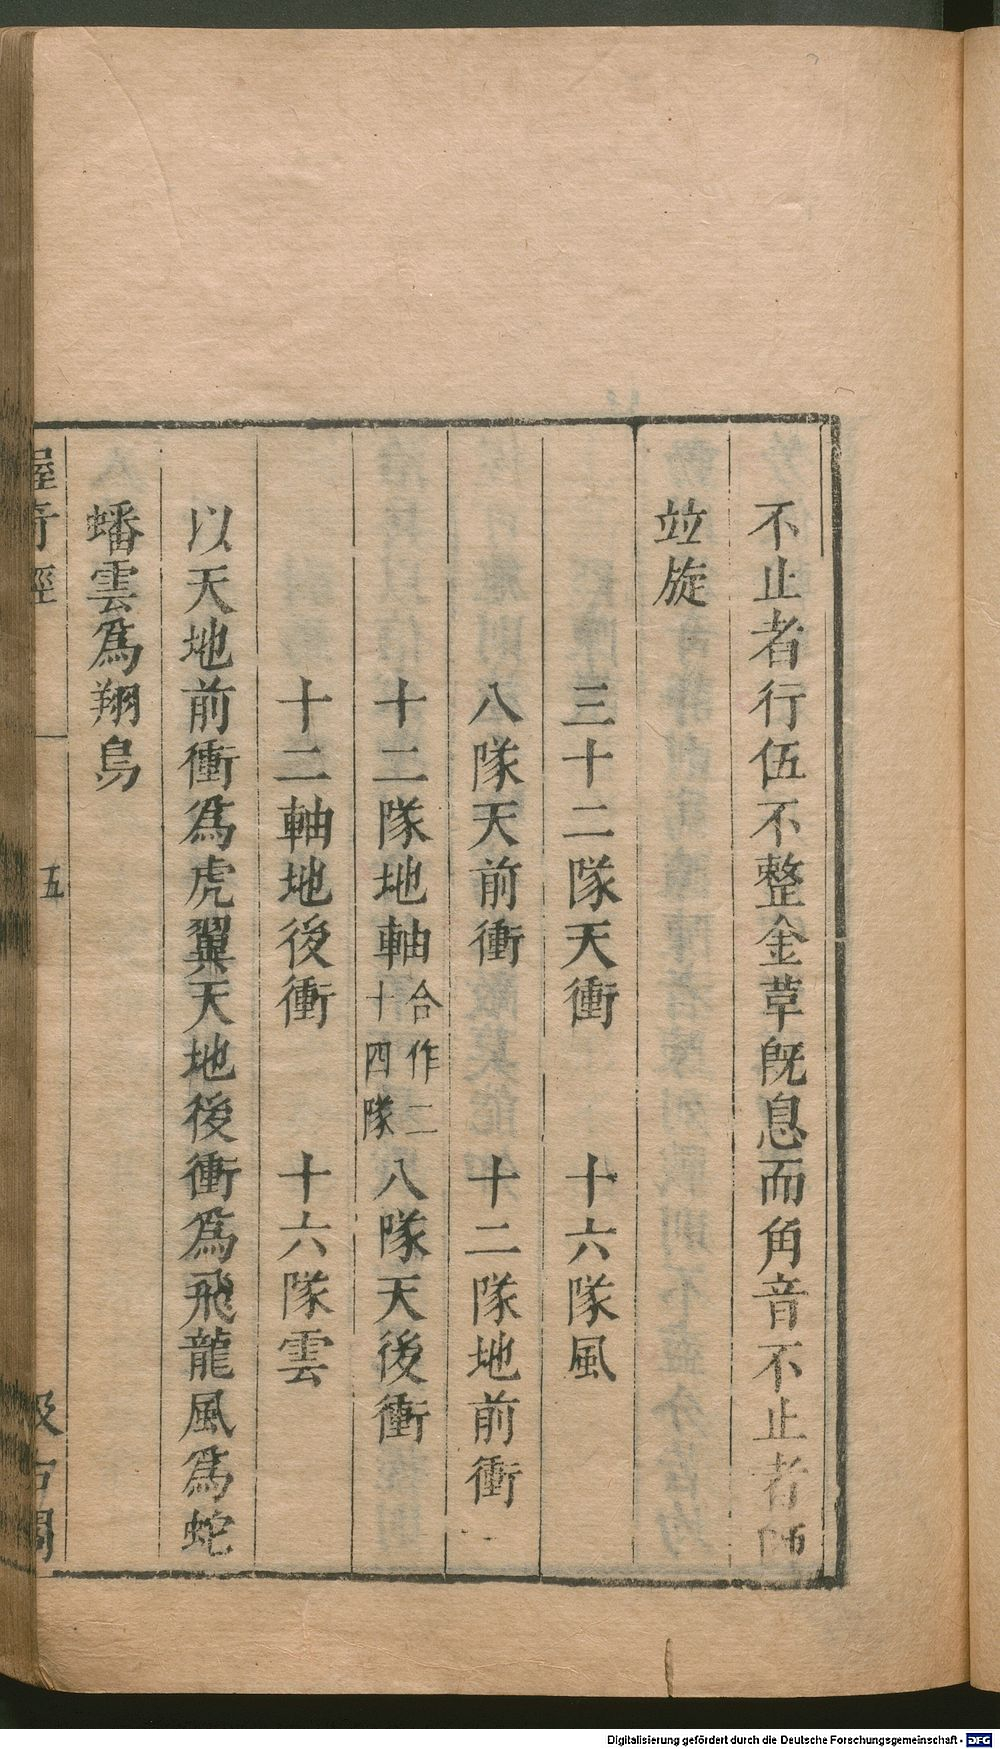 不止者行伍不整金革旣息而角音不止者師
竝旋
三十二隊天衝　十六隊風
八隊天前衝　十二隊地前衝
十二隊地軸合作二十四隊八隊天後衝
十二軸地後衝　十六隊雲
以天地前衝爲虎翼天地後衝爲飛龍風爲蛇
蟠雲爲翔鳥
握奇經　五　汲古閣
Digitalisierung gefördert durch die Deutsche Forschungsgemeinschaft - DFG